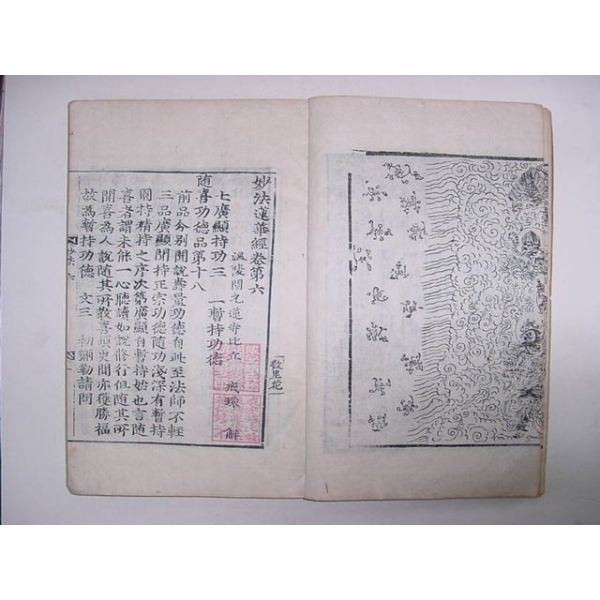 妙法蓮華經卷第六
溫陵開元蓮寺比丘 戒環 解
七廣顯持功三 一暫持功德
隨喜功德品第十八
前品分別開說壽量功德自此至法師不輕
三品廣顯開持正宗功德隨功淺深有暫持
圓持精持之序次第廣顯自暫持始也言隨
喜者謂未能一心聽讀如說修行但隨其所
聞喜為人說隨其所教喜須臾聞亦獲勝福
故為暫持功德 文三 初彌勒請問
散里花